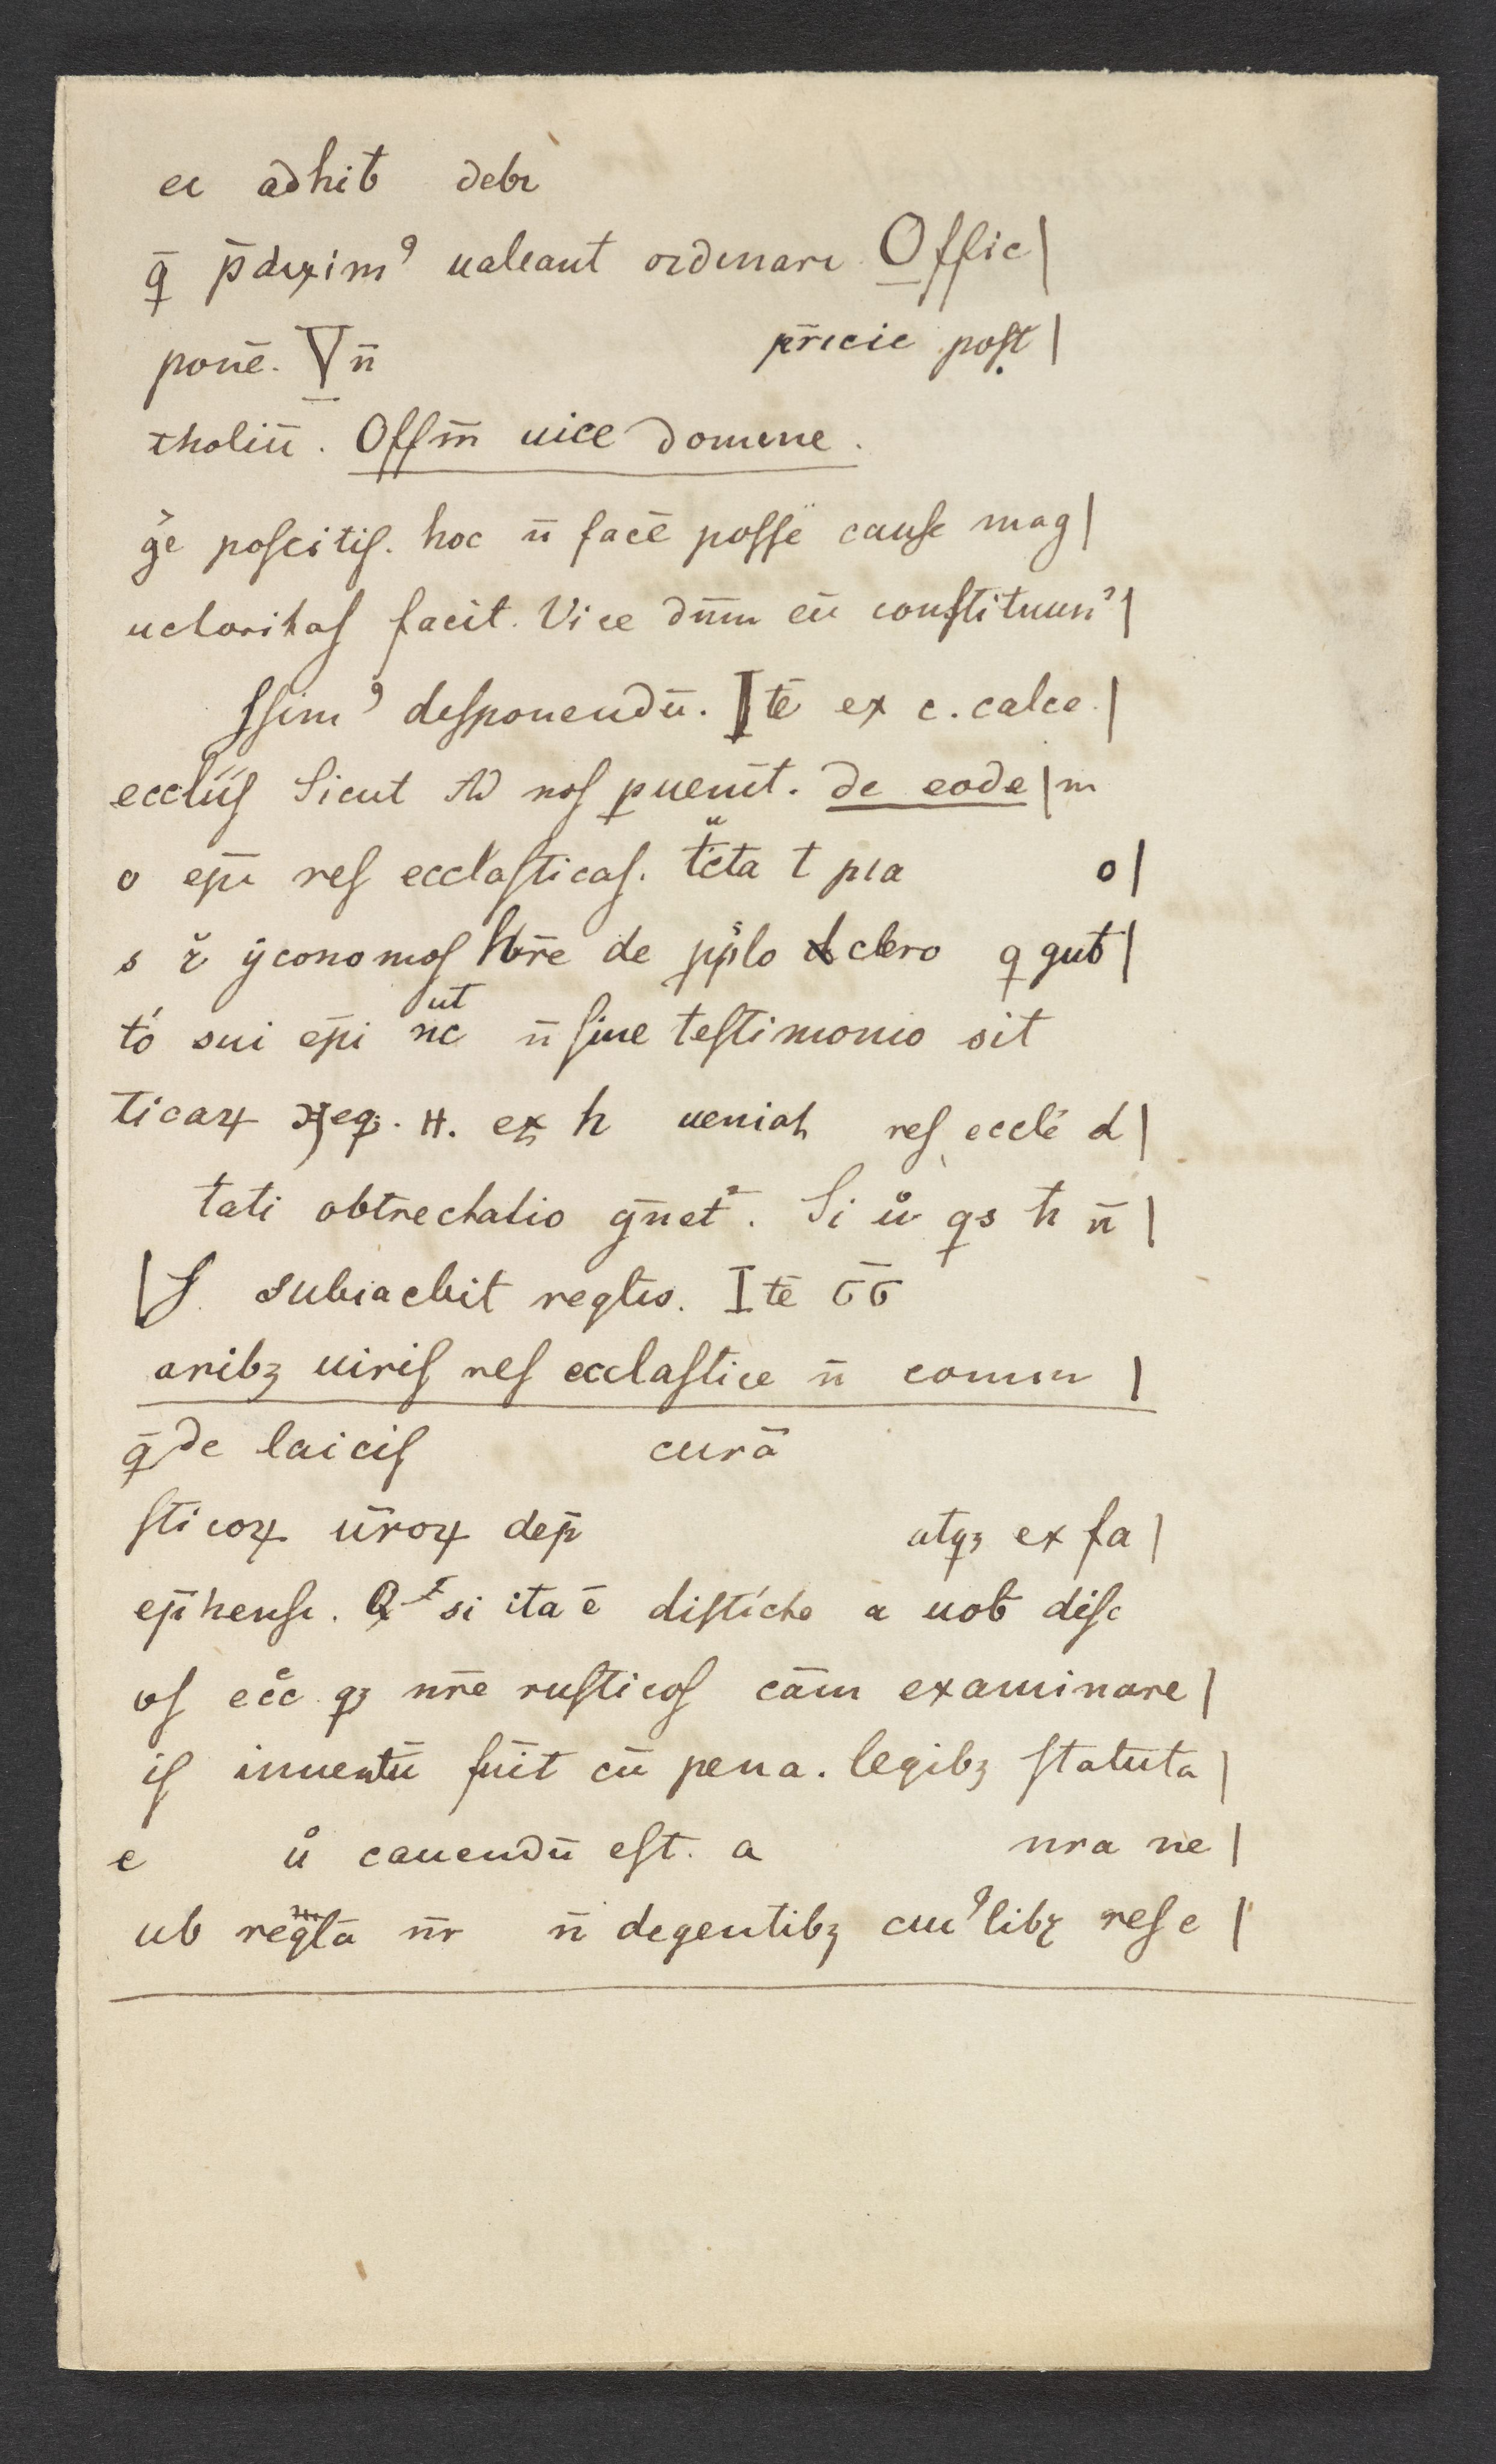 ei adhib̄ debi
q̄ p̄diximꝰ ualeant ordinari Offic|
ponē. Vn̄ p̄ricie post |
tholiū. Offm̄ uice domine.
ğe poscitis. hoc n̄ facē posse cause mag|
uctoritas facit. Vice dn̄m eū constituim'|
ssimꝰ desponendū. Itē ex c. calce.|
ecclīis Sicut Ad nos ꝑuenit. de eode|m
o ep̄i res ecclasticas. tc̄ta t pia o|
s r̆ ẏconomos hr̄e de pp̊lo clero q gub̄|
tó sui ep̄i nc̄ ut n̄ sine testimonio sit
ticaꝝ eqꝫ. H. ex h ueniat res eccle d|
tati obtrectatio gn̄et². Si ů qs h n̄|
|S. subiacebit reglis. Itē c̄c̄
aribꝫ uiris res ecclastice n̄ comm |
q̄ de laicis curā
sticoꝝ ūroꝝ dep̄ atqꝫ ex fa|
ep̄hensi. Q si ita ē disticte a uob̄ disc
os ec̊c qꝫ nr̄e rusticos cām examinare|
is inuentū fuit cū pena. legibꝫ statuta|
e ů cauendū est. a nra ne|
ub reglā nr̄ n̄ degentibꝫ cuiꝰlibꝫ res e |